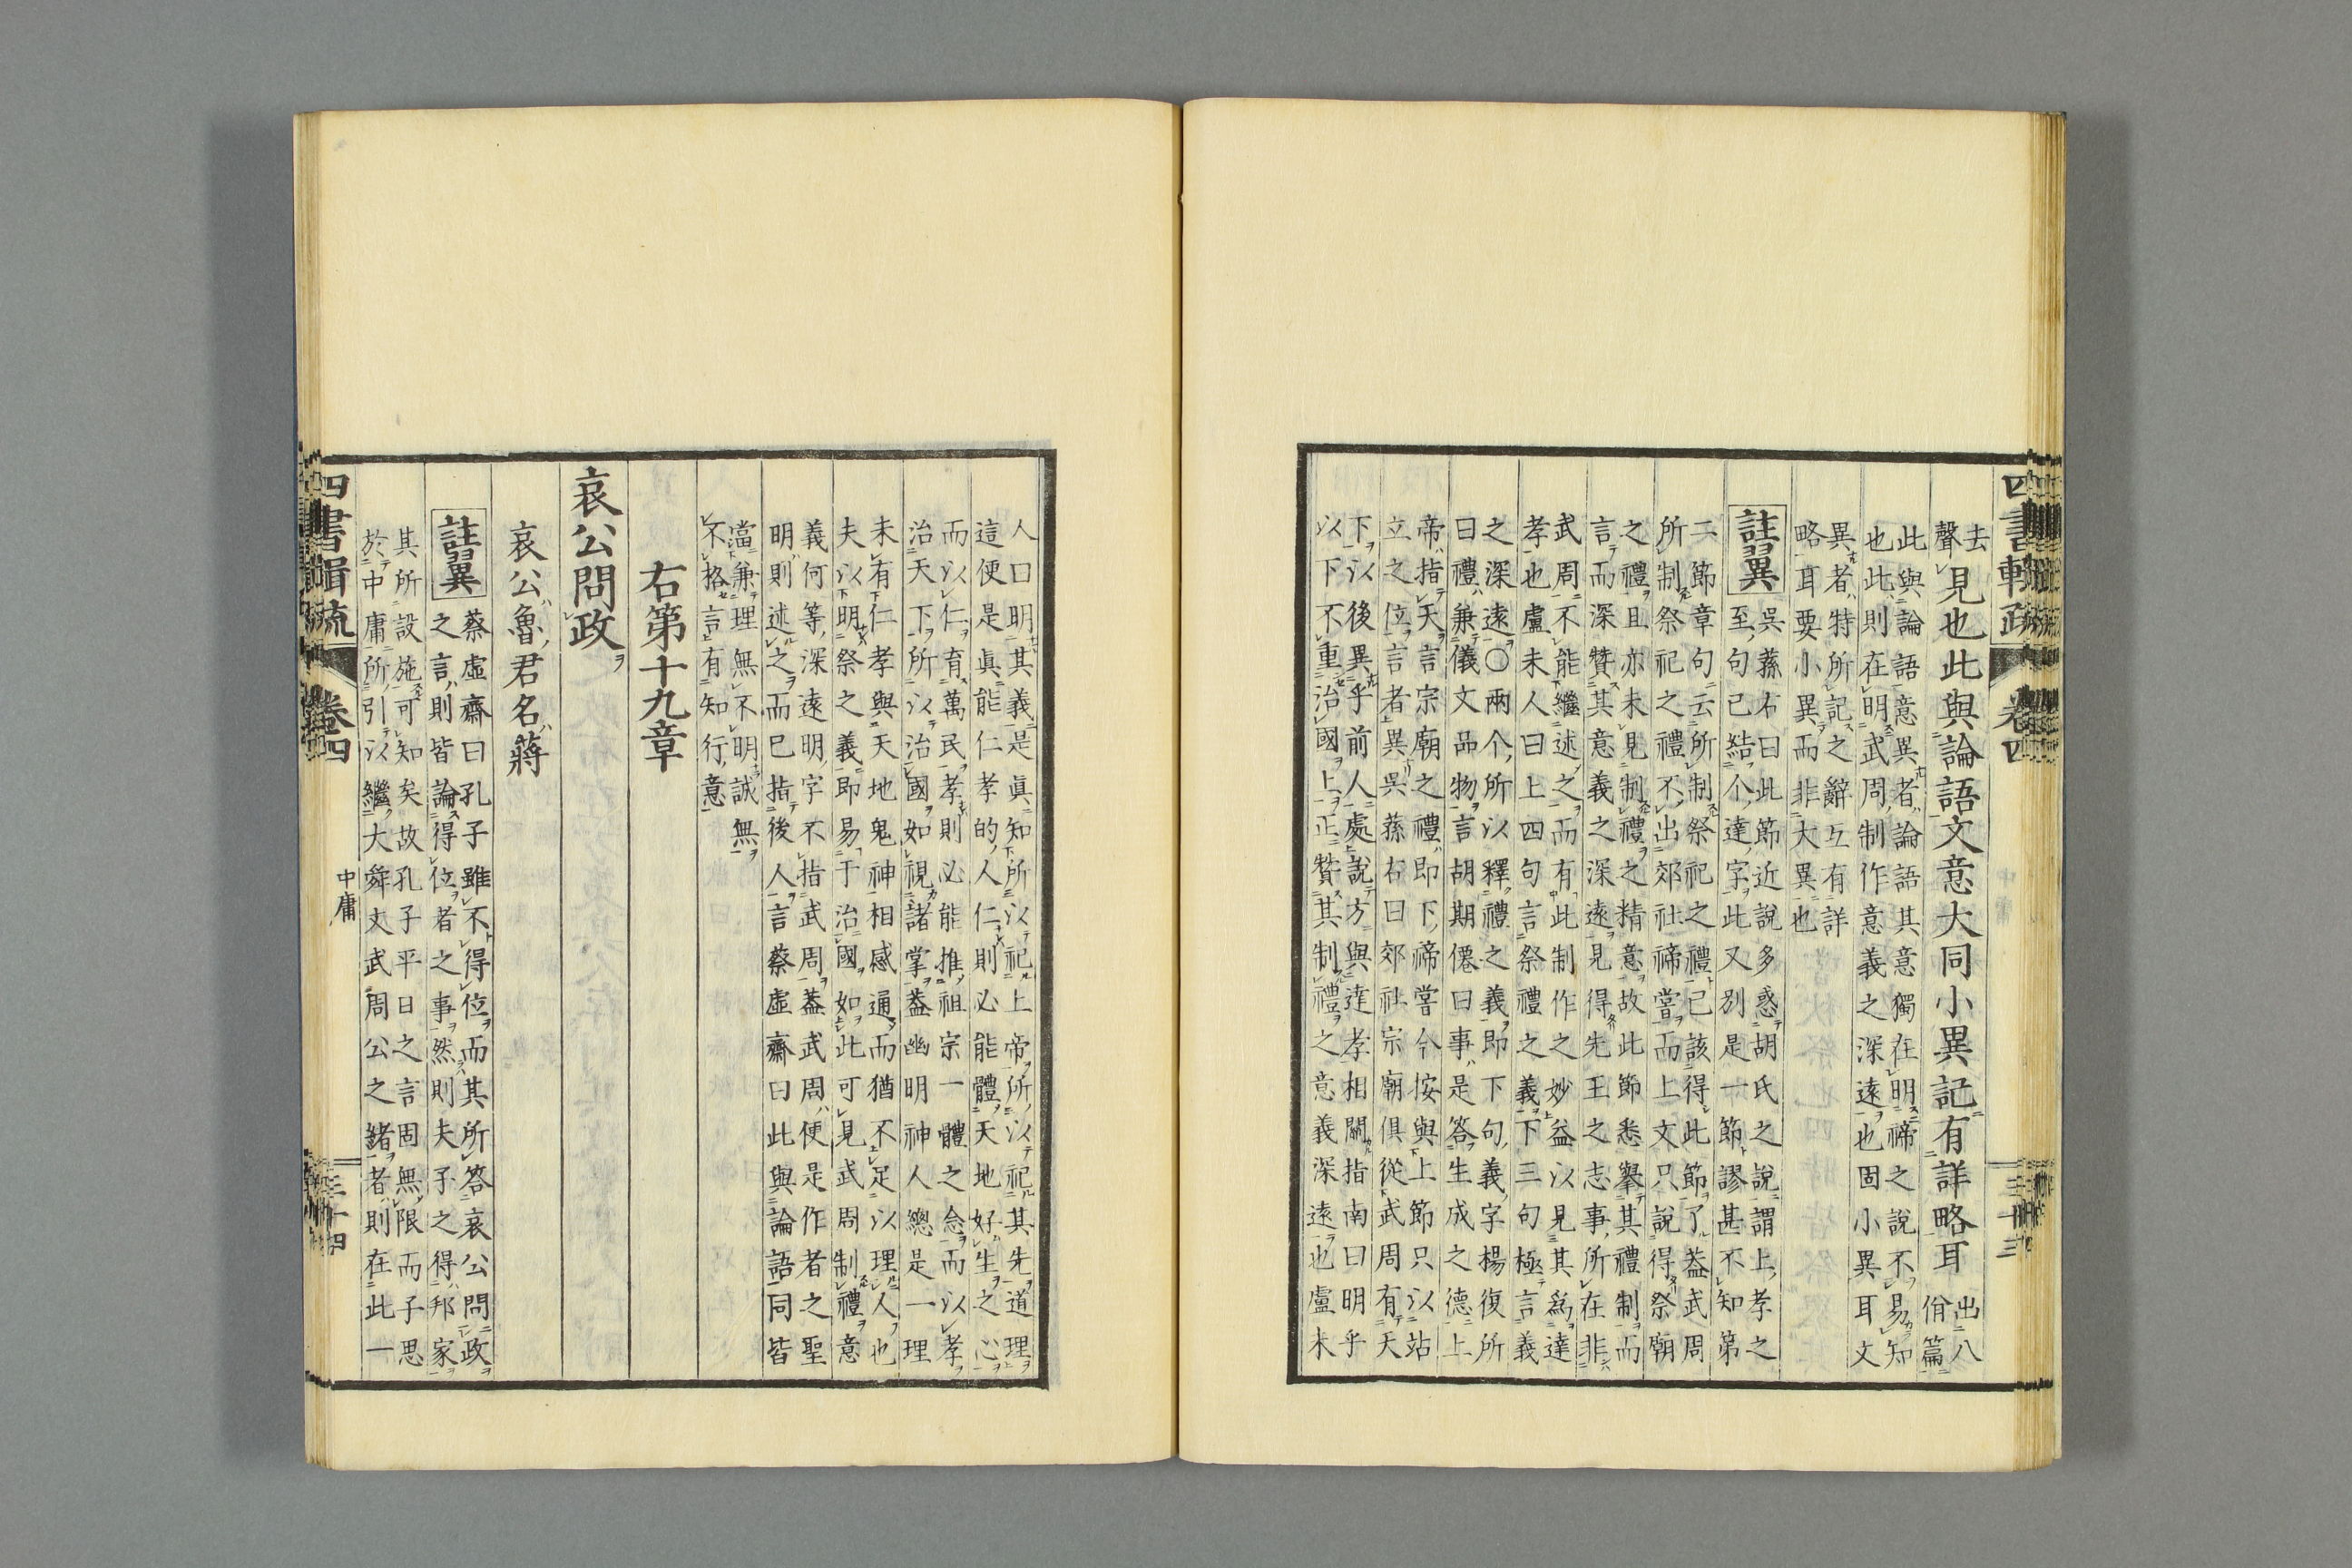 四書輯疏 卷四 三十三
去
聲見也此與論語文意大同小異記有詳略耳出八
佾篇
此與論語意異者論語其意獨在明禘之說不易知
也此則在明武周制作意義之深遠也固小異耳文
異者特所記之辭互有詳
略耳要小異而非大異也
註翼
吳蓀右曰此節近說多惑胡氏之說謂上孝之
至句已結个達字此又別是一節謬甚不知第
二節章句云所制祭祀之禮已該得此節了蓋武周
所制祭祀之禮不出郊社禘嘗而上文只說得祭廟
之禮且亦未見制禮之精意故此節悉舉其禮制而
言而深贊其意義之深遠見得先王之志事所在非
武周不能繼述之而有此制作之妙益以見其為達
孝也盧未人曰上四句言祭禮之義下三句極言義
之深遠〇兩个所以釋禮之義即下句義字楊復所
曰禮兼儀文品物言胡期僊曰事是答生成之德上
帝指天言宗廟之禮即下禘嘗今按與上節只以站
立之位言者異吳蓀右曰郊社宗廟俱從武周有天
下以後異乎前人處說方與達孝相關指南曰明乎
以下不重治國上正贊其制禮之意義深遠也盧未
人曰明其義是眞知所以祀上帝所以祀其先道理
這便是眞能仁孝的人仁則必能體天地好生之心
而以仁育萬民孝則必能推祖宗一體之念而以孝
治天下所以治國如視諸掌蓋幽明神人總是一理
未有仁孝與天地鬼神相感通而猶不足以理人也
夫以明祭之義即易于治國如此可見武周制禮意
義何等深遠明字不指武周蓋武周便是作者之聖
明則述之而已指後人言蔡虛齋曰此與論語同皆
當兼理無不明誠無
不格言有知行意
右第十九章
哀公問政
哀公魯君名蔣
註翼
蔡虛齋曰孔子雖不得位而其所答哀公問政
之言則皆論得位者之事然則夫子之得邦家
其所設施可知矣故孔子平日之言固無限而子思
於中庸所引以繼大舜文武周公之緒者則在此一
四書輯疏 卷四 中庸 三十四